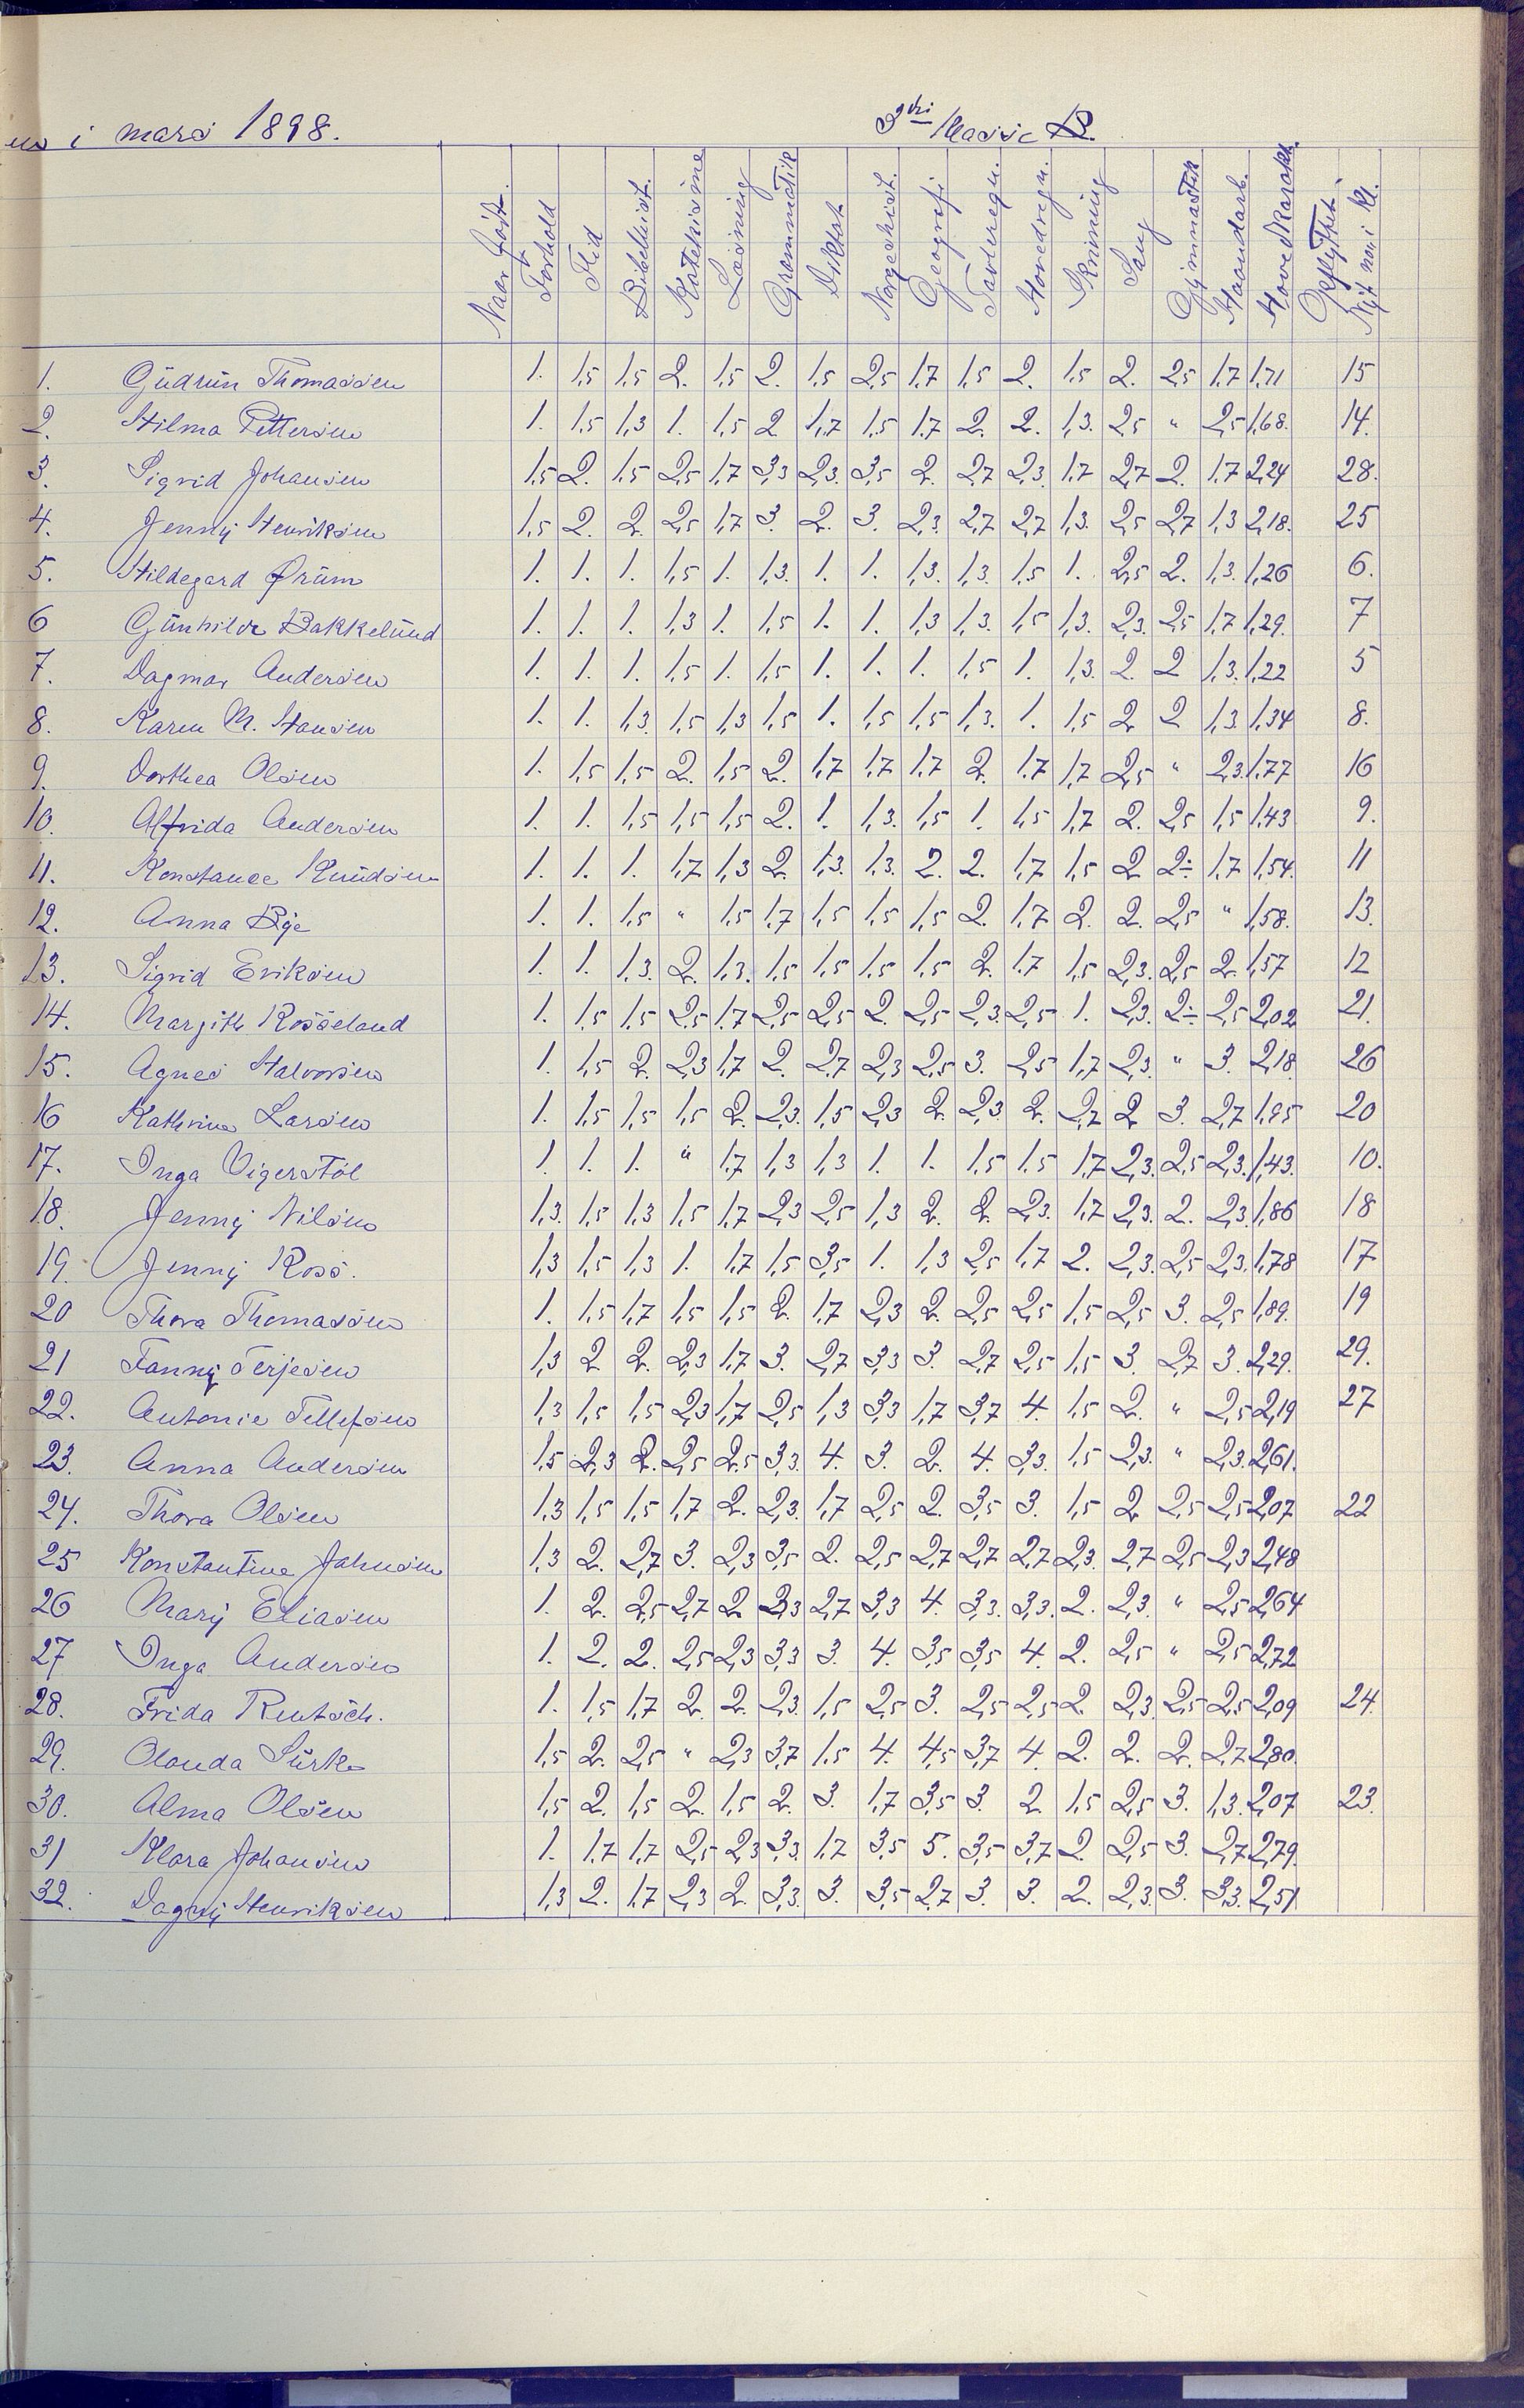 i mars 1898. 3die Klasse B.
Naar født. Forhold Flid Bibelhist. Katekisme Læsning Grammatik Diktat Norgeshist. Geografi Tavleregn. Hovedregn. Skrivning Sang Gymnastik Haandarb. Hovedkarakt. Opflyttet Nyt no. i Kl.
1. Gudrun Thomassen 1. 1,5 1,5 2. 1,5 2. 1,5 2,5 1,7 1,5 2. 1,5 2. 2,5 1,7 1,71 15
2. Hilma Pettersen 1. 1,5 1,3 1. 1,5 2 1,7 1,5 1,7 2. 2. 1,3. 2,5 " 2,5 1,68. 14.
3. Sigrid Johansen 1,5 2. 1,5 2,5 1,7 3,3 2,3. 3,5 2. 2,7 2,3. 1,7 2,7 2. 1,7 2,24 28.
4. Jenny Henriksen 1,5 2. 2. 2,5 1,7 3. 2. 3. 2,3 2,7 2,7 1,3. 2,5 2,7 1,3 2,18. 25
5. Hildegard Ørum 1. 1. 1. 1,5 1. 1,3. 1. 1. 1,3. 1,3. 1,5 1. 2,5 2. 1,3. 1,26 6.
6 Gunhilde Bakkelund 1. 1. 1. 1,3 1. 1,5 1. 1. 1,3 1,3. 1,5 1,3. 2,3. 2,5 1,7 1,29. 7
7. Dagmar Andersen 1. 1. 1. 1,5 1. 1,5 1. 1. 1. 1,5 1. 1,3. 2. 2 1,3. 1,22 5
8. Karen M. Hansen 1. 1. 1,3. 1,5 1,3 1,5 1. 1,5 1,5 1,3. 1. 1,5 2 2 1,3. 1,34 8.
9. Dorthea Olsen 1. 1,5 1,5 2. 1,5 2. 1,7 1,7 1,7 2. 1,7 1,7 2,5 " 2,3. 1,77 16
10. Alfrida Andersen 1. 1. 1,5 1,5 1,5 2. 1. 1,3. 1,5 1. 1,5 1,7 2. 2,5 1,5 1,43 9.
11. Konstance Knudsen 1. 1. 1. 1,7 1,3 2. 1,3. 1,3. 2. 2. 1,7 1,5 2 2÷ 1,7 1,54. 11
12. Anna Bye 1. 1. 1,5 " 1,5 1,7 1,5 1,5 1,5 2. 1,7 2. 2. 2,5 " 1,58. 13.
13. Sigrid Eriksen 1. 1. 1,3. 2. 1,3. 1,5 1,5 1,5 1,5 2. 1,7 1,5 2,3. 2,5 2. 1,57 12
14. Margith Rosseland 1. 1,5 1,5 2,5 1,7 2,5 2,5 2. 2,5 2,3. 2,5 1. 2,3. 2÷ 2,5 2,02 21.
15. Agnes Halvorsen 1. 1,5 2. 2,3 1,7 2. 2,7 2,3 2,5 3. 2,5 1,7 2,3. " 3. 2,18. 26
16 Kathrine Larsen 1. 1,5 1,5 1,5 2. 2,3. 1,5 2,3 2. 2,3 2. 2,7 2 3. 2,7 1,95 20
17. Inga Vigerstöl 1. 1. 1. " 1,7 1,3 1,3 1. 1. 1,5 1,5 1,7 2,3. 2,5 2,3. 1,43. 10.
18. Jenny Nilsen 1,3. 1,5 1,3 1,5 1,7 2,3 2,5 1,3 2. 2. 2,3. 1,7 2,3. 2. 2,3. 1,86 18
19. Jenny Ross. 1,3 1,5 1,3 1. 1,7 1,5 3,5 1. 1,3 2,5 1,7 2. 2,3. 2,5 2,3. 1,78 17
20 Thora Thomassen 1. 1,5 1,7 1,5 1,5 2. 1,7 2,3 2. 2,5 2,5 1,5 2,5 3. 2,5 1,89. 19
21 Fanny Terjesen 1,3 2. 2. 2,3 1,7 3. 2,7 3,3 3. 2,7 2,5 1,5 3. 2,7 3. 2,29. 29.
22. Antonie Tellefsen 1,3 1,5 1,5 2,3 1,7 2,5 1,3 3,3 1,7 3,7 4. 1,5 2. " 2,5 2,19 27
23. Anna Andersen 1,5 2,3 2. 2,5 2,5 3,3. 4. 3. 2. 4. 3,3. 1,5 2,3. " 2,3. 2,61.
24. Thora Olsen 1,3 1,5 1,5 1,7 2. 2,3. 1,7 2,5 2. 3,5 3. 1,5 2. 2,5 2,5 2,07 22
25 Konstantine Johnsen 1,3 2. 2,7 3. 2,3 3,5 2. 2,5 2,7 2,7 2,7 2,3. 2,7 2,5 2,3 2,48
26 Mary Eliasen 1. 2. 2,5 2,7 2 3,3 2,7 3,3 4. 3,3. 3,3. 2. 2,3. " 2,5 2,64
27 Inga Andersen 1. 2. 2. 2,5 2,3 3,3 3. 4. 3,5 3,5 4. 2. 2,5 " 2,5 2,72
28. Frida Rentsch. 1. 1,5 1,7 2. 2. 2,3. 1,5 2,5 3. 2,5 2,5 2. 2,3. 2,5 2,5 2,09 24.
29. Olanda 1,5 2. 2,5 " 2,3 3,7 1,5 4. 4,5 3,7 4. 2. 2. 2. 2,7 2,80.
30. Alma Olsen 1,5 2. 1,5 2. 1,5 2. 3. 1,7 3,5 3. 2. 1,5 2,5 3. 1,3. 2,07 23.
31 Klara Johansen 1. 1,7 1,7 2,5 2,3 3,3. 1,7 3,5 5. 3,5 3,7 2. 2,5 3. 2,7 2,79.
32. Dagny Henriksen 1,3 2. 1,7 2,3 2. 3,3. 3. 3,5 2,7 3. 3. 2. 2,3. 3. 3,3. 2,51